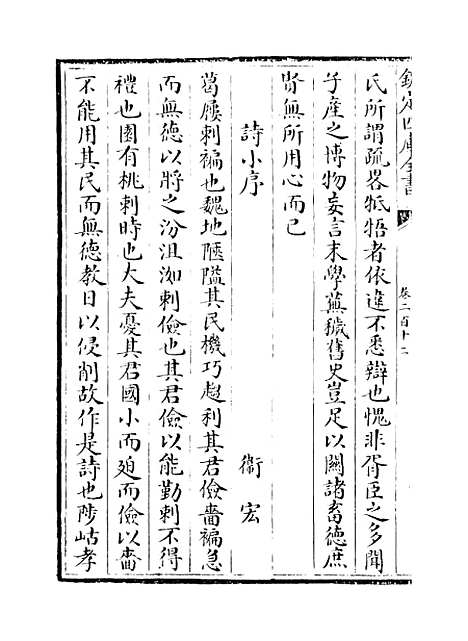 欽定四庫全書
卷二百十二
氏所謂疏畧牴牾者依違不悉辯也愧非胥臣之多聞
子產之博物妄言末學蕪穢舊史豈足以關諸畜德庶
賢無所用心而已
詩小序 衞宏
葛屨刺褊也魏地陿隘其民機巧趨利其君儉嗇褊急
而無德以將之汾沮洳刺儉也其君儉以能勤刺不得
禮也園有桃刺時也大夫憂其君國小而廹而儉以嗇
不能用其民而無德教日以侵削故作是詩也陟岵孝